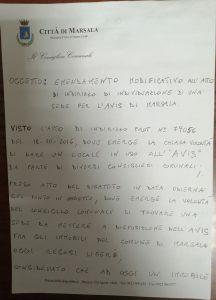 CITTÀ DI MARSALA
Il Consigliere Comunale
OGGETTO: EMENDAMENTO MODIFICATIVO ALL'ATTO
DI INDIRIZZO DI INDIVIDUAZIONE DI UNA
SEDE PER L'AVIS DI MARSALA.
VISTO L'ATTO DI INDIRIZZO PROT N°
DEL 18-10-2016, DOVE EMERGE LA CHIARA VOLONTÀ
DI DARE UN LOCALE IN USO ALL'"AVIS"
DA PARTE DI DIVERSI CONSIGLIERI COMUNALI.
PRESO ATTO DEL DIBATTITO IN DATA ODIERNA
SUL PUNTO IN OGGETTO, DOVE EMERGE LA VOLONTÀ
DEL CONSIGLIO COMUNALE DI TROVARE UNA
SEDE DA METTERE A DISPOSIZIONE DELL'AVIS
FRA GLI IMMOBILI DEL COMUNE DI MARSALA
OGGI LIBERI
CONSIDERATO CHE AD OGGI UN IMMOBILE